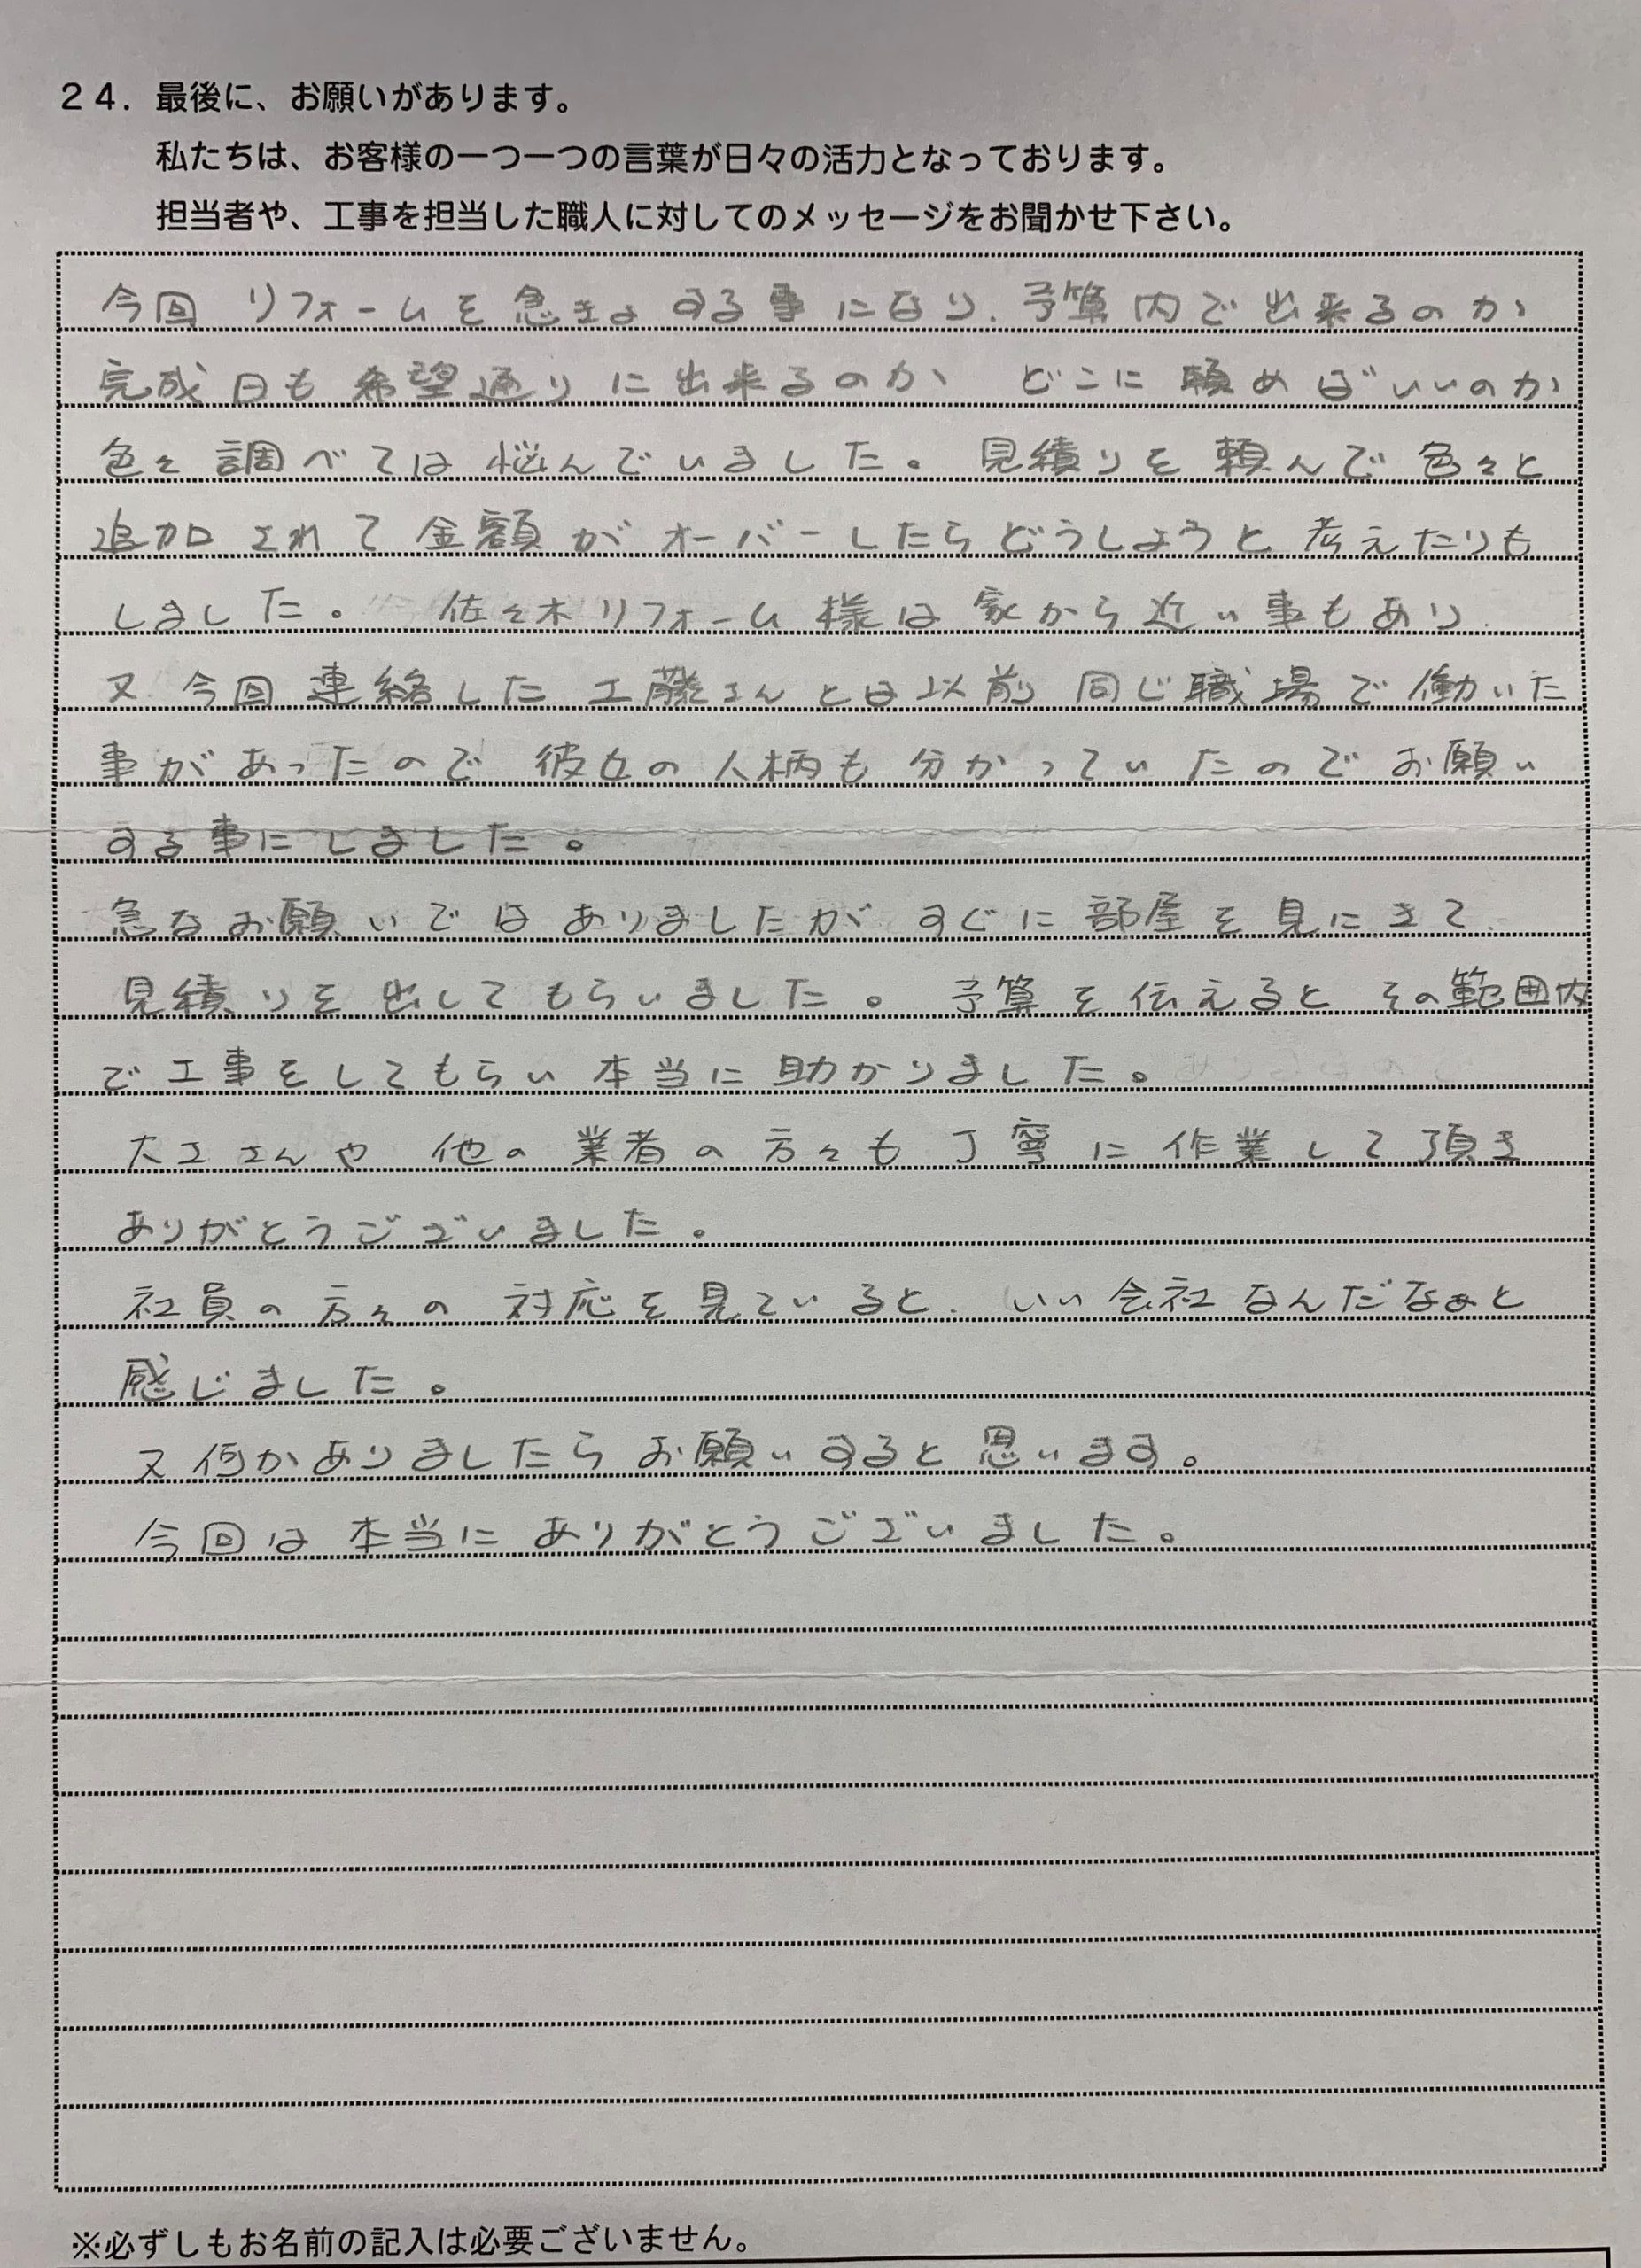 24. 最後に、お願いがあります。
私たちは、お客様の一つ一つの言葉が日々の活力となっております。
担当者や、工事を担当した職人に対してのメッセージをお聞かせ下さい。
今回 リフォームを急きょする事になり、予算内で出来るのか
完成日も希望通りに出来るのか どこに頼めばいいのか
色々調べては悩んでいました。見積りを頼んで色々と
追加されて金額がオーバーしたらどうしようと考えたりも
しました。 佐々木リフォーム様は家から近い事もあり、
又、今回連絡した工藤さんとは以前同じ職場で働いた
事があったので彼女の人柄も分かっていたのでお願い
する事にしました。
急なお願いではありましたがすぐに部屋を見にきて、
見積りを出してもらいました。予算を伝えるとその範囲内
で工事をしてもらい本当に助かりました。
大工さんや他の業者の方々も丁寧に作業して頂き
ありがとうございました。
社員の方々の対応を見ていると、いい会社なんだなぁと
感じました。
又何かありましたらお願いすると思います。
今回は本当にありがとうございました。
※必ずしもお名前の記入は必要ございません。